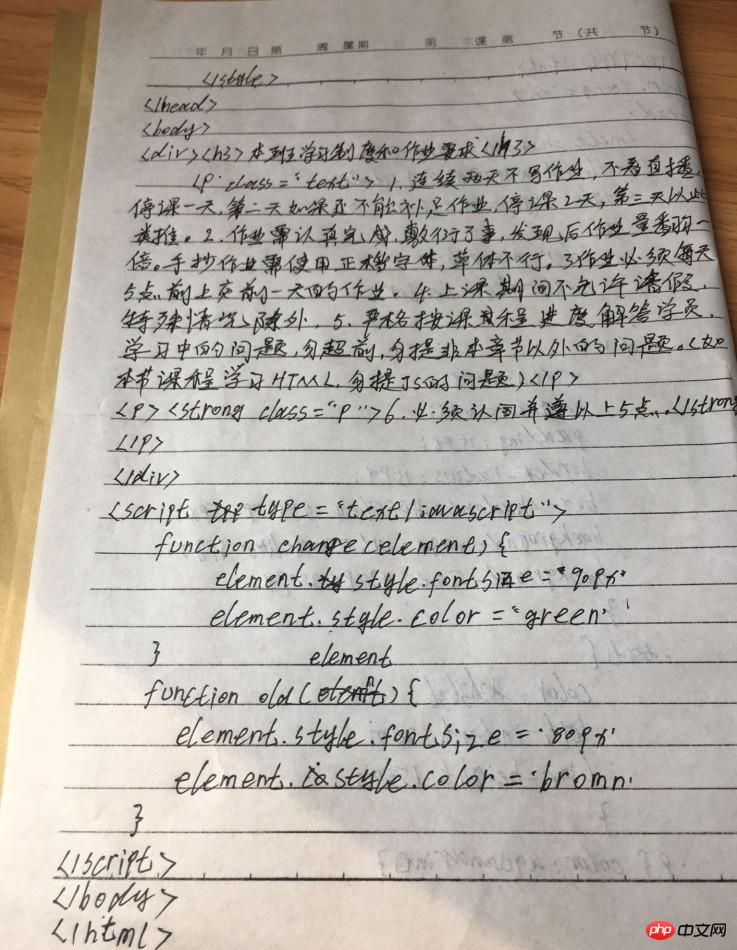 年 月 日 第 周 星期 第 课 第 节 (共 节)
</style>
</head>
<body>
<div><h3>本班学习制度和作业要求</h3>
<p class="text">1.连续两天不写作业,不看直播,
停课一天,第二天如果还不能补足作业,停课2天,第三天以此
类推。2.作业需认真完成,敷衍了事,发现后作业量番羽一
倍。手抄作业需使用正楷字体,草体不行。3作业必须每天
5点前上交前一天的作业。4.上课期间不允许请假,
特殊情况除外,5.严格按课程进度解答学员,
学习中的问题,勿超前,勿提非本章节以外的问题。(如
本节课程学习HTML,勿提JS的问题)</p>
<p><strong class="p">6.必须认同并遵以上5点。</strong
</p>
</div>
<script type="text/javascript">
function change(element){
element.style.fontsize="90px"
element.style.color="green"
}
element
function old(){
element.style.fontSize="80px"
element.style.color="bromn"
}
</script>
</body>
</html>
php 中文网